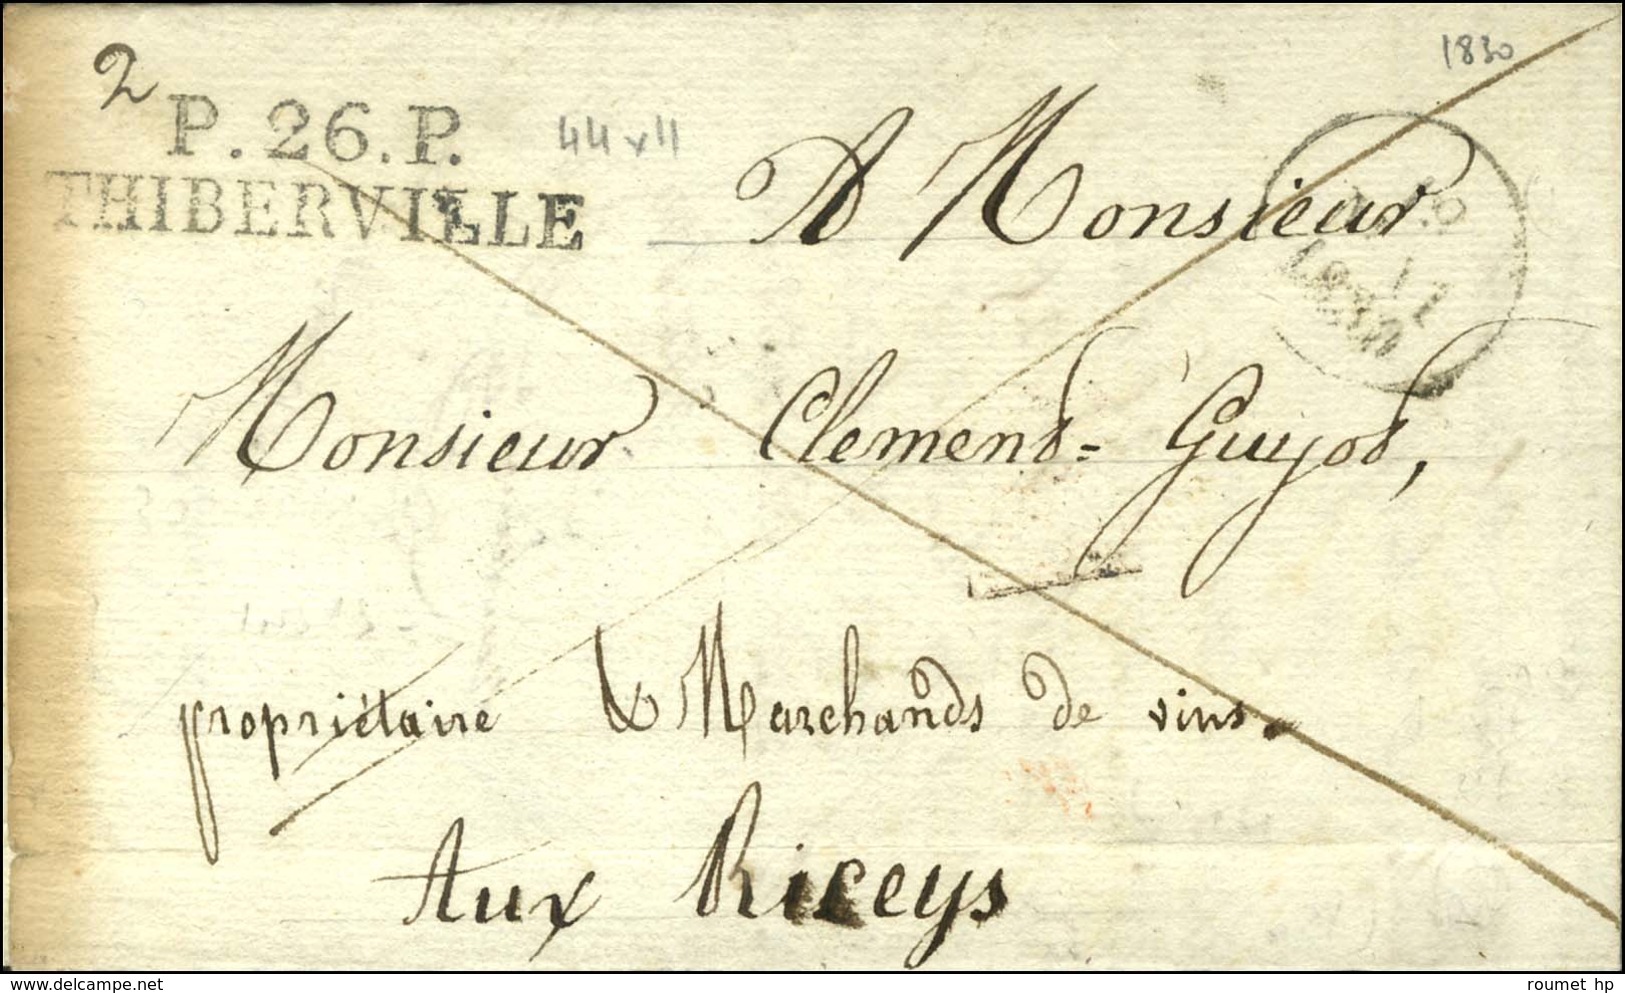 1830
2
P. 26. P.
THIBERVILLE
44 x 11
A Monsieur
Monsieur Clement=Guyot,
propriétaire & Marchands de vins.
Aux Riceys
delcampe.net
roumet hp